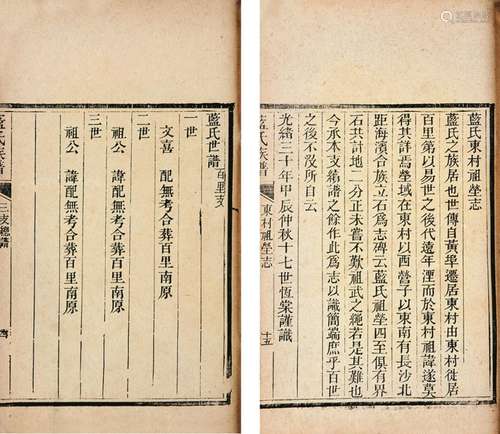 藍氏東村祖塋志
藍氏之族居也世傳自黃埠遷居東村由東村徙居
百里第以易世之後代遠年湮而於東村祖諱遂莫
得其詳焉塋域在東村以西營子以東南有長沙北
距海濱合族立石為志碑云藍氏祖塋四至俱有界
石共計地二分正未嘗不歎祖武之繩若是其難也
今承本支緒譜之餘作此為志以識簡端庶乎百世
之後不沒所自云
光緒三十年甲辰仲秋十七世恆棠謹識
藍氏族譜
東村祖塋志
十五
藍氏世譜 百里支
一世
文喜 配無考合葬百里南原
二世
祖公 諱配無考合葬百里南原
三世
祖公 諱配無考合葬百里南原
藍氏族譜
三支總譜